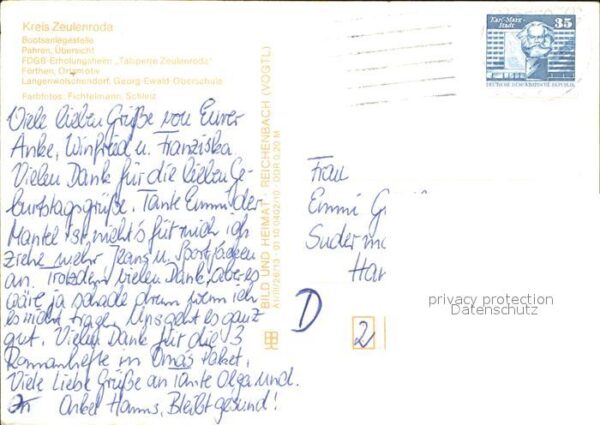 Kreis Zeulenroda
Bootsanlegestelle
Pahren, Übersicht
FDGB-Erholungsheim „Talsperre Zeulenroda"
Förthen, Ortsmotiv
Langenwolschendorf, Georg-Ewald-Oberschule
Farbfotos: Fichtelmann, Schleiz
Viele lieben Grüße von Eurer
Anke, Winfried u. Franziska
Vielen Dank für die lieben Ge-
burtstagsgrüße. Tante Emmi der
Mantel ist nicht's für mich ich
ziehe mehr Jeans u. Sportjacken
an. Trotzdem vielen Dank, aber es
wäre ja schade drum wenn ich
es nicht trage. Uns geht es ganz
gut. Vielen Dank für die 3
Romanhefte in Omas Paket.
Viele Liebe Grüße an Tante Olga und
Onkel Hanns, Bleibt gesund!
BILD UND HEIMAT · REICHENBACH (VOGTL)
01 10 04 02/10 DDR 0,20 M
Karl-Marx-
Stadt
35
DEUTSCHE DEMOKRATISCHE REPUBLIK
Frau
Emmi G
Suderm
Han
D
2
privacy protection
Datenschutz